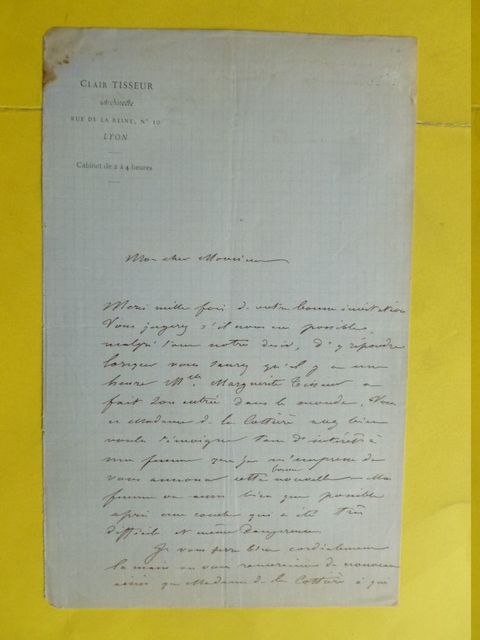 CLAIR TISSEUR
Architecte
RUE DE LA REINE, N° 10
LYON
Cabinet de 2 à 4 heures
Mon cher Monsieur
Merci mille fois de votre bonne invitation
Vous jugerez s'il nous est possible,
malgré tout notre désir, d'y répondre
lorsque vous saurez qu'il y a une
heure Mlle Marguerite Tisseur a
fait son entrée dans le monde. Vous
et Madame de la Cottière avez bien
voulu témoigner tant d'intérêt à
ma femme que je m'empresse de
vous annoncer cette bonne nouvelle. Ma
femme va aussi bien que possible
après une couche qui a été très
difficile et même dangereuse.
Je vous serre bien cordialement
la main en vous remerciant de nouveau
ainsi que Madame de la Cottière à qui